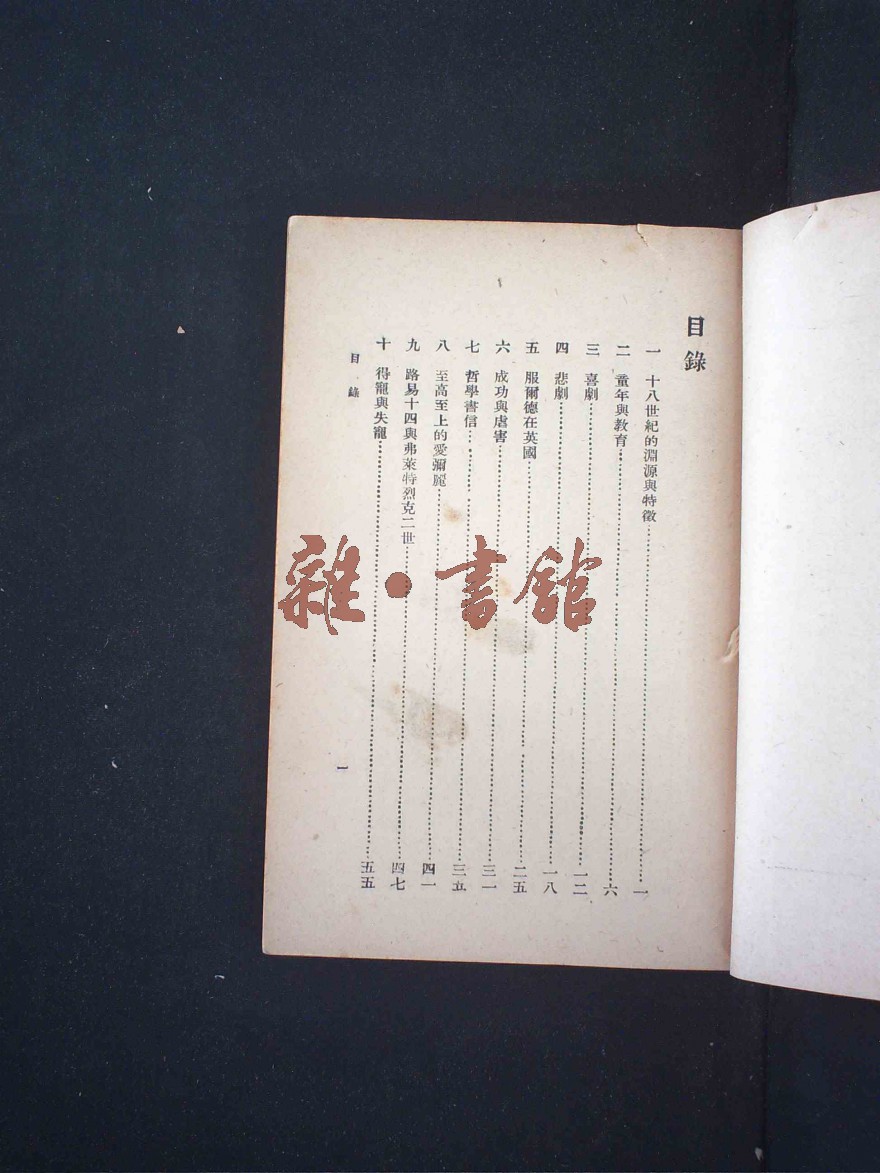 目錄
一 十八世紀的淵源與特徵……一
二 童年與教育……六
三 喜劇……一二
四 悲劇……一八
五 服爾德在英國……二五
六 成功與虐害……三一
七 哲學書信……三五
八 至高至上的愛彌麗……四一
九 路易十四與弗萊特烈克二世……四七
十 得寵與失寵……五五
目錄
一
雜·書舘